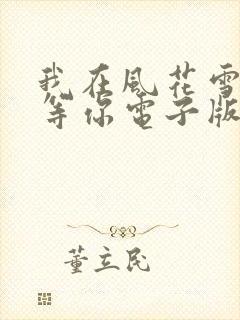 我在風花雪
等你電子版
董立民